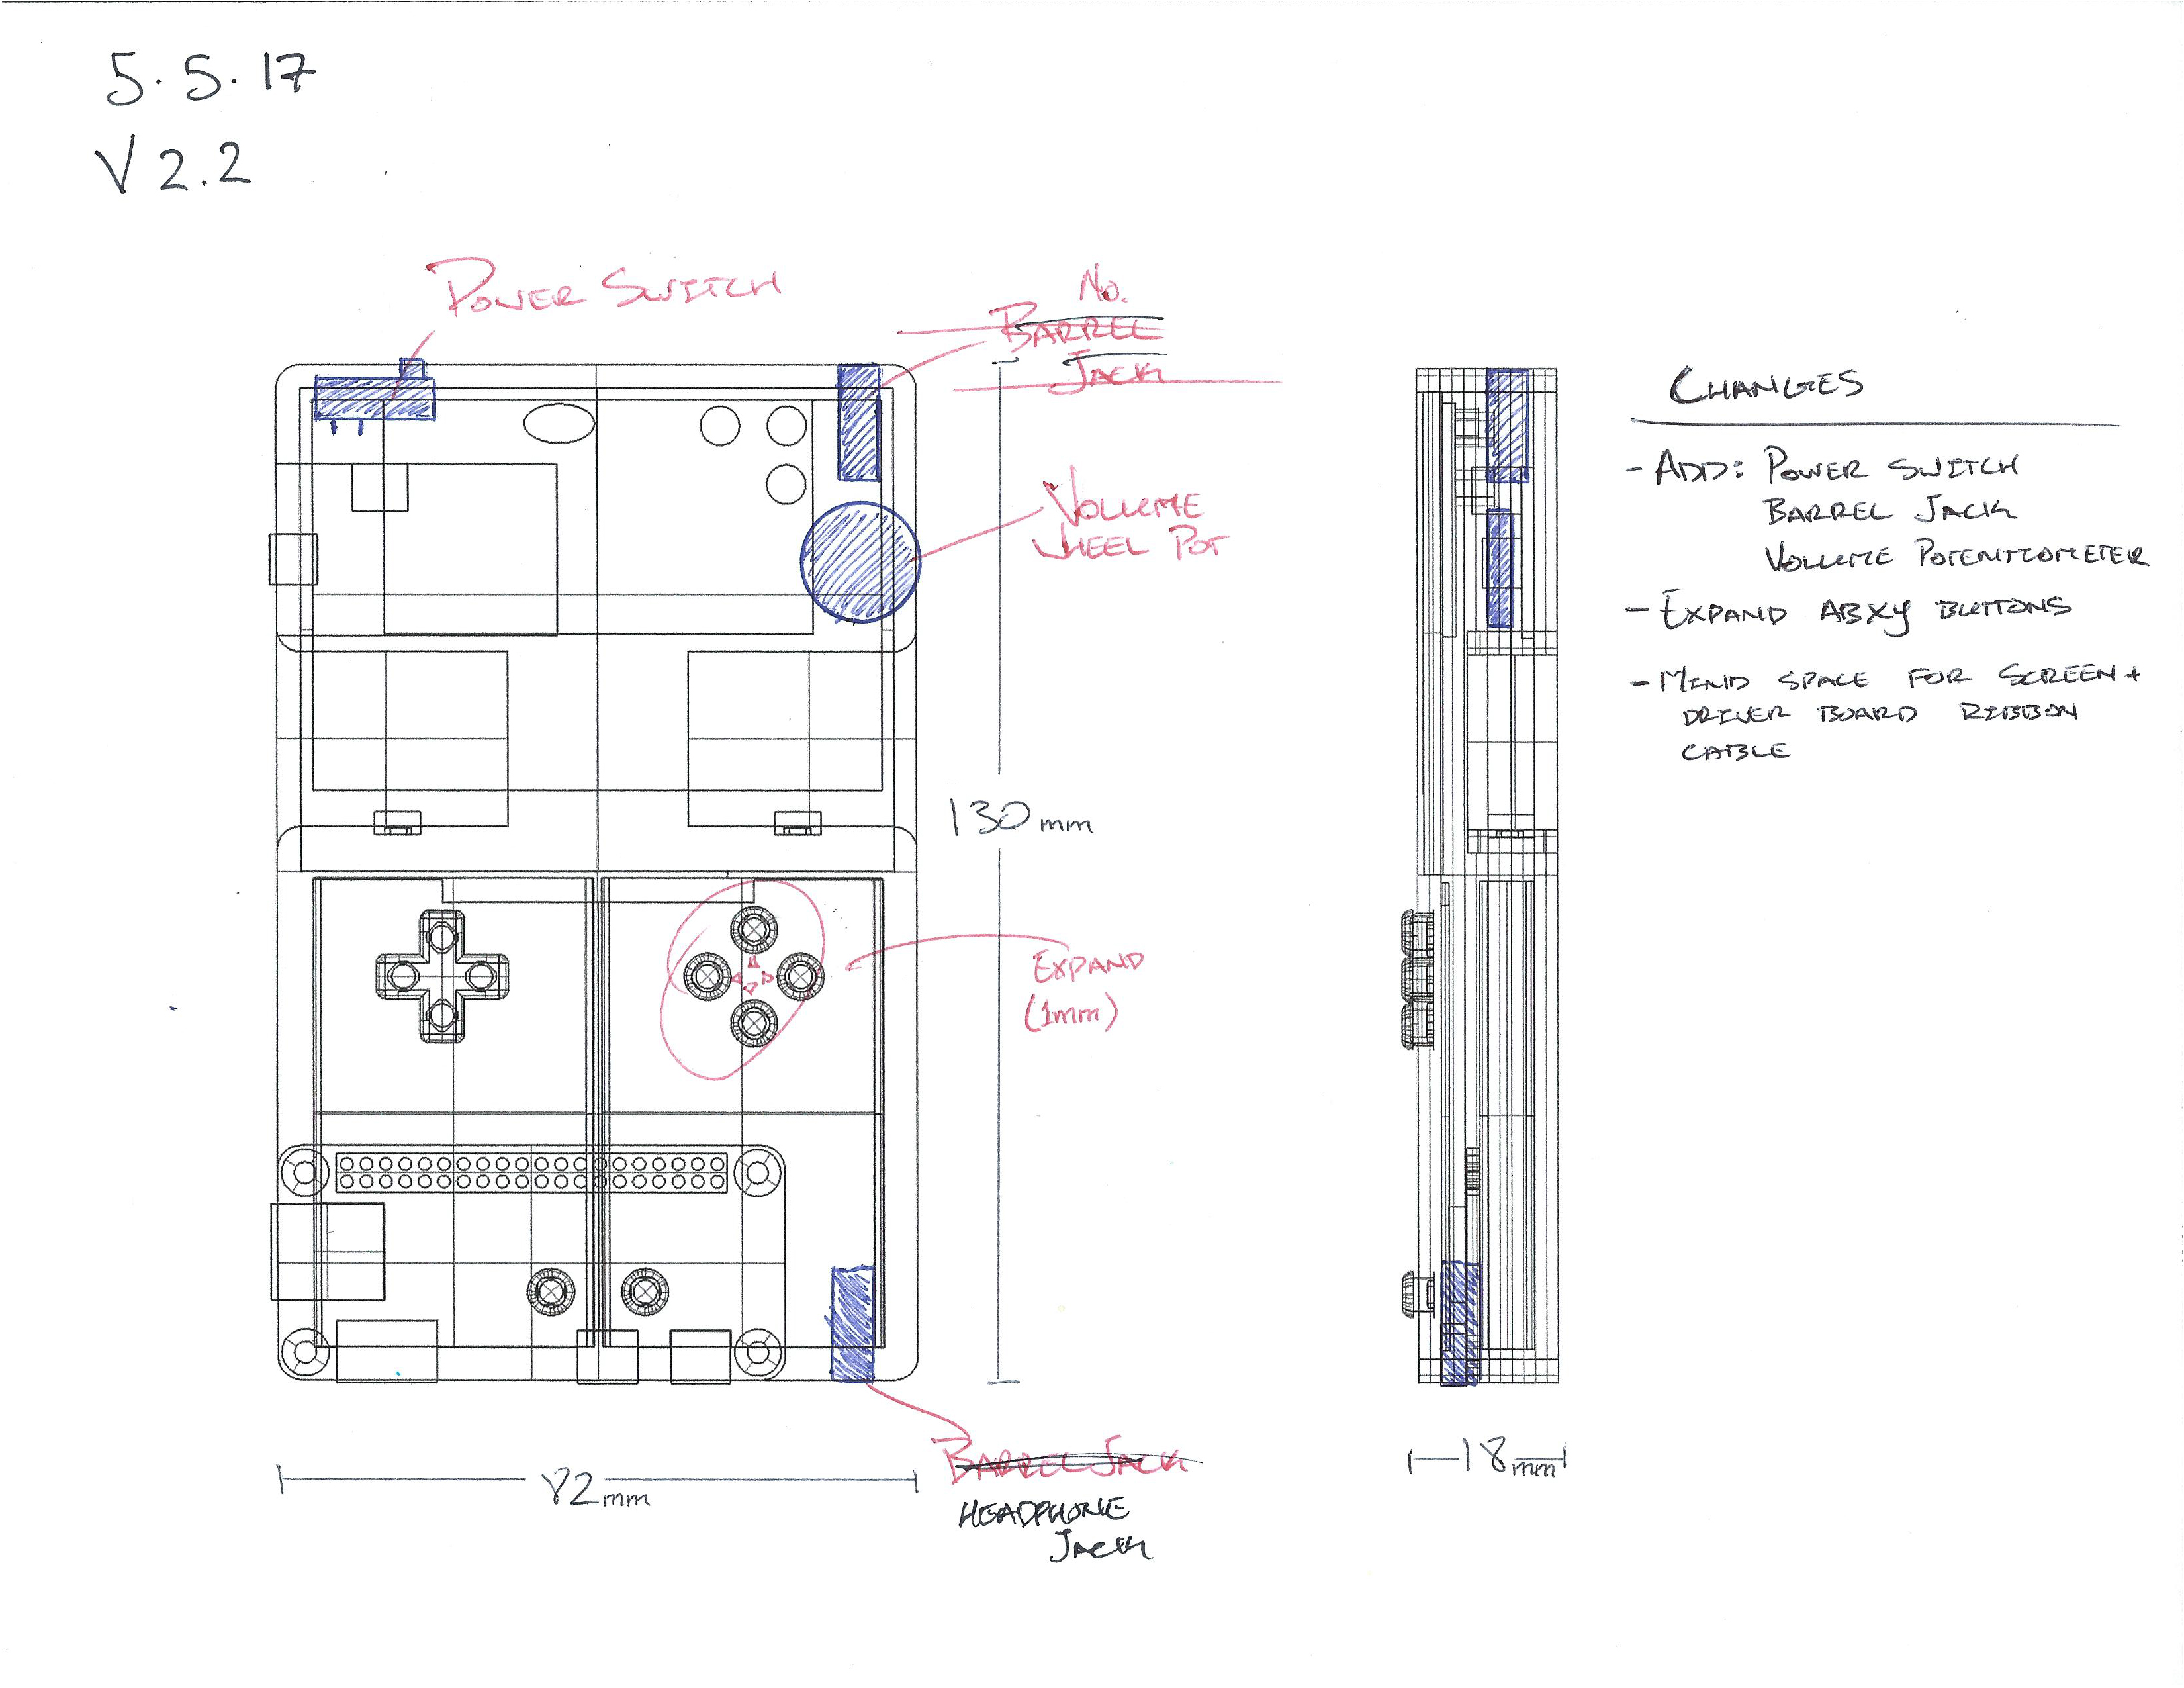 5.5.17
V 2.2
POWER SWITCH
No.
BARREL
JACK
VOLUME
WHEEL POT
130mm
EXPAND
(1mm)
BARREL JACK
HEADPHONE
JACK
82mm
18mm
CHANGES
- ADD: POWER SWITCH
BARREL JACK
VOLUME POTENTIOMETER
- EXPAND ABXY BUTTONS
- MIND SPACE FOR SCREEN +
DRIVER BOARD RIBBON
CABLE